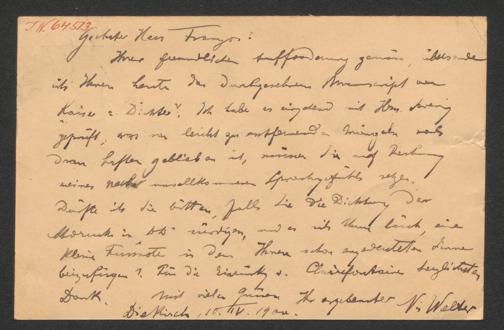 I.N. 64573
Geehrter Herr Franzos!
Ihrer freundlichen Aufforderung gemäss, übersende
ich Ihnen heute das Manuscript von
Kaiser u. Dichter". Ich habe es eingehend mit Hrn.
geprüft, was an leicht zu entfernenden noch
dran haften geblieben ist, müssen Sie auf Rechnung
meines noch unvollkommenen Sprachgefühls setzen.
Dürfte ich Sie bitten, falls Sie die Dichtung der
würdigen, und es Ihnen eine
kleine Fussnote in dem Ihnen schon angedeuteten Sinne
beizufügen? Für die v. Clairefontaine besten
Dank. Mit vielen Grüssen Ihr ergebenster N. Welter
Diekirch, 10. IV. 1900.